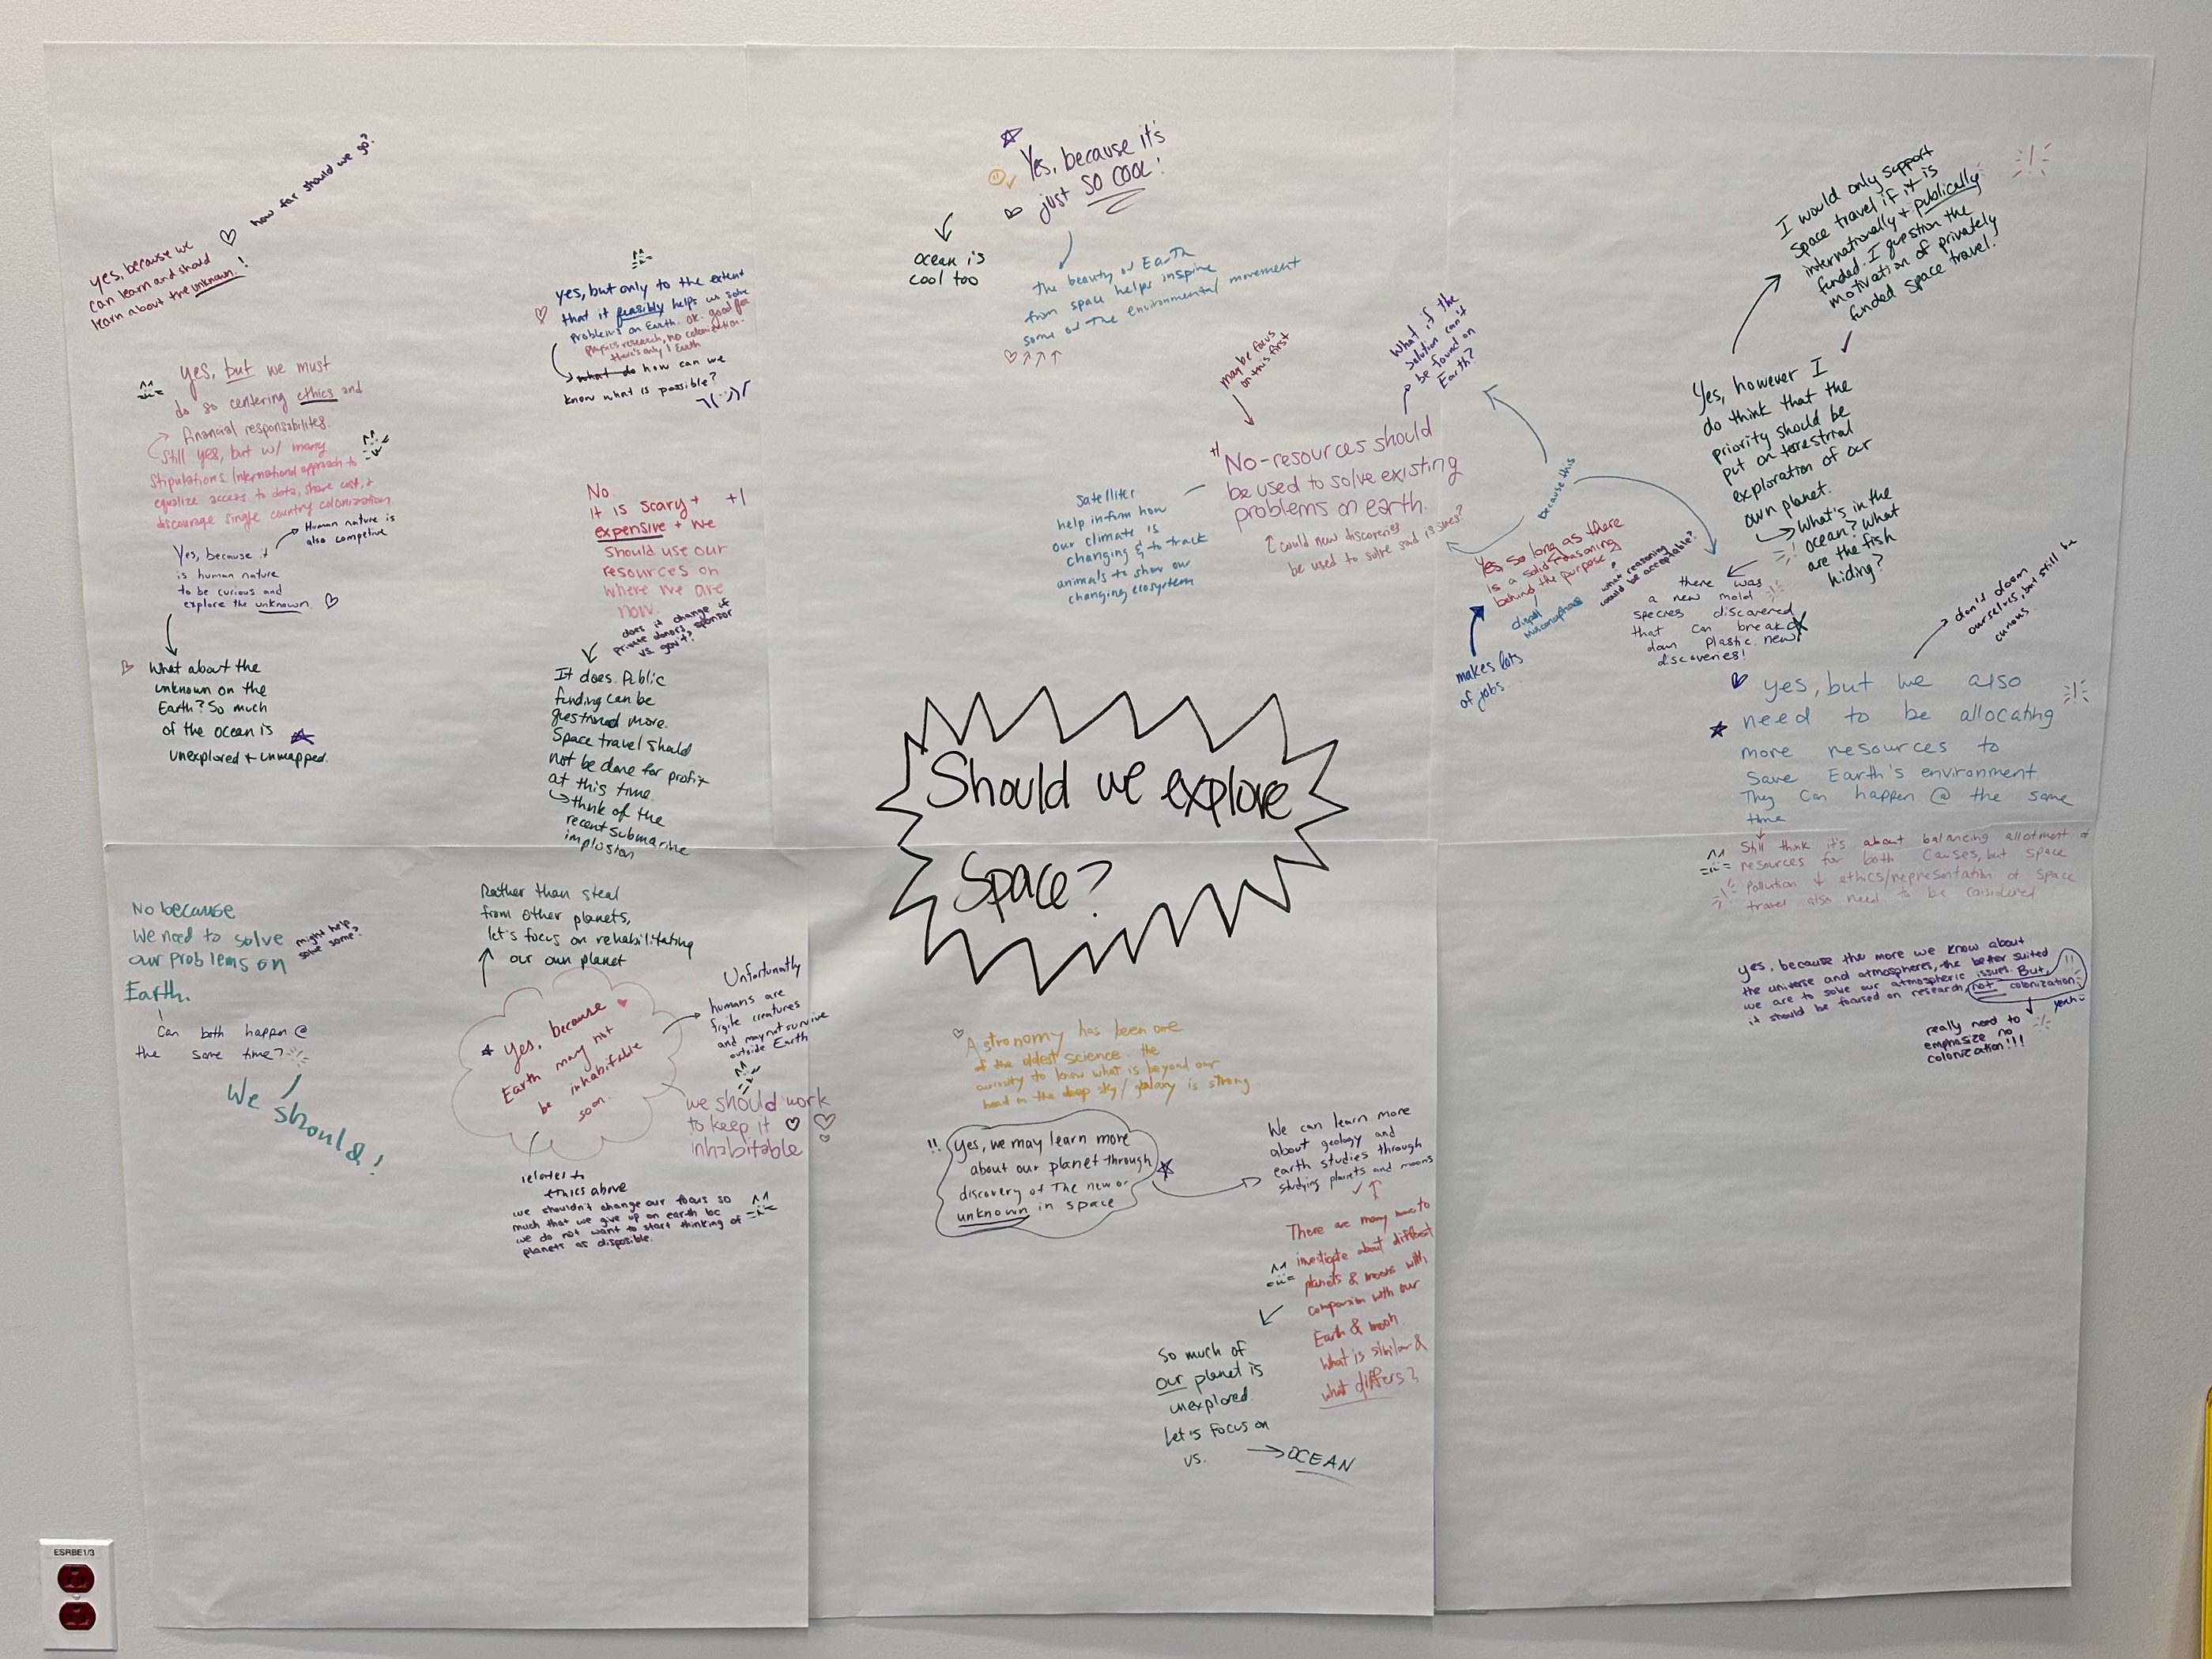 how far should we go?
yes, because we
can learn and should
learn about the unknown!
yes, but we must
do so centering ethics and
financial responsibilites.
still yes, but w/ many
stipulations International approach to
equalize access to data, share cost, +
discourage single country colonization.
Human nature is
also competive
Yes, because it
is human nature
to be curious and
explore the unknown
What about the
unknown on the
Earth? So much
of the ocean is
unexplored + unmapped.
yes, but only to the extent
that it feasibly helps us solve
problems on Earth. OK. good for
physics research, no colonization-
there's only 1 Earth
what do how can we
know what is possible?
¯\(··)/¯
No.
it is scary + +1
expensive + we
should use our
resources on
where we are
now.
does it change if
private donors sponsor
vs. gov't?
It does. Public
funding can be
questioned more.
Space travel should
not be done for profit
at this time.
think of the
recent submarine
implosion
Yes, because it's
just SO COOL!
ocean is
cool too
The beauty of Earth
from space helps inspire
some of the environmental movement
maybe focus
on this first
What if the
solution can't
be found on
Earth?
+1
No-resources should
be used to solve existing
problems on earth.
could new discoveries
be used to solve said issues?
Satellites
help inform how
our climate is
changing & to track
animals to show our
changing ecosystem
because this
Yes so long as there
is a solid reasoning
behind the purpose
what reasoning
would be acceptable?
dispell
misconceptions
makes lots
of jobs...
I would only support
space travel if it is
internationally + publically
funded. I question the
motivation of privately
funded space travel.
Yes, however I
do think that the
priority should be
put on terrestrial
exploration of our
own planet.
What's in the
ocean? What
are the fish
hiding?
there was
a new mold
species discovered
that can break
down plastic. new
discoveries!
don't doom
ourselves, but still be
curious.
yes, but we also
need to be allocating
more resources to
save Earth's environment
They can happen @ the same
time
Still think it's about balancing allotment of
resources for both causes, but space
pollution + ethics/representation of space
travel also need to be considered
yes, because the more we know about
the universe and atmospheres, the better suited
we are to solve our atmospheric issues. But,
it should be focused on research, not colonization.
!!
yeah
really need to
emphasize no
colonization!!!
Should we explore
Space?
No because
We need to solve
our problems on
Earth.
might help
solve some?
Can both happen @
the same time?
We should!
Rather than steal
from other planets,
let's focus on rehabilitating
our own planet
Yes, because
Earth may not
be inhabitable
soon.
Unfortunatly
humans are
frgile creatures
and may not survive
outside Earth
we should work
to keep it
inhabitable
relates to
ethics above
we shouldn't change our focus so
much that we give up on earth bc
we do not want to start thinking of
planets as disposible.
Astronomy has been one
of the oldest science. the
curiosity to know what is beyond our
head in the deep sky/galaxy is strong
!!
Yes, we may learn more
about our planet through
discovery of the new or
unknown in space
We can learn more
about geology and
earth studies through
studying planets and moons
There are many more to
investigate about different
planets & moons with
comparsion with our
Earth & moon
What is similar &
what differs?
So much of
our planet is
unexplored.
Let's focus on
us.
OCEAN
ESRBE1/3